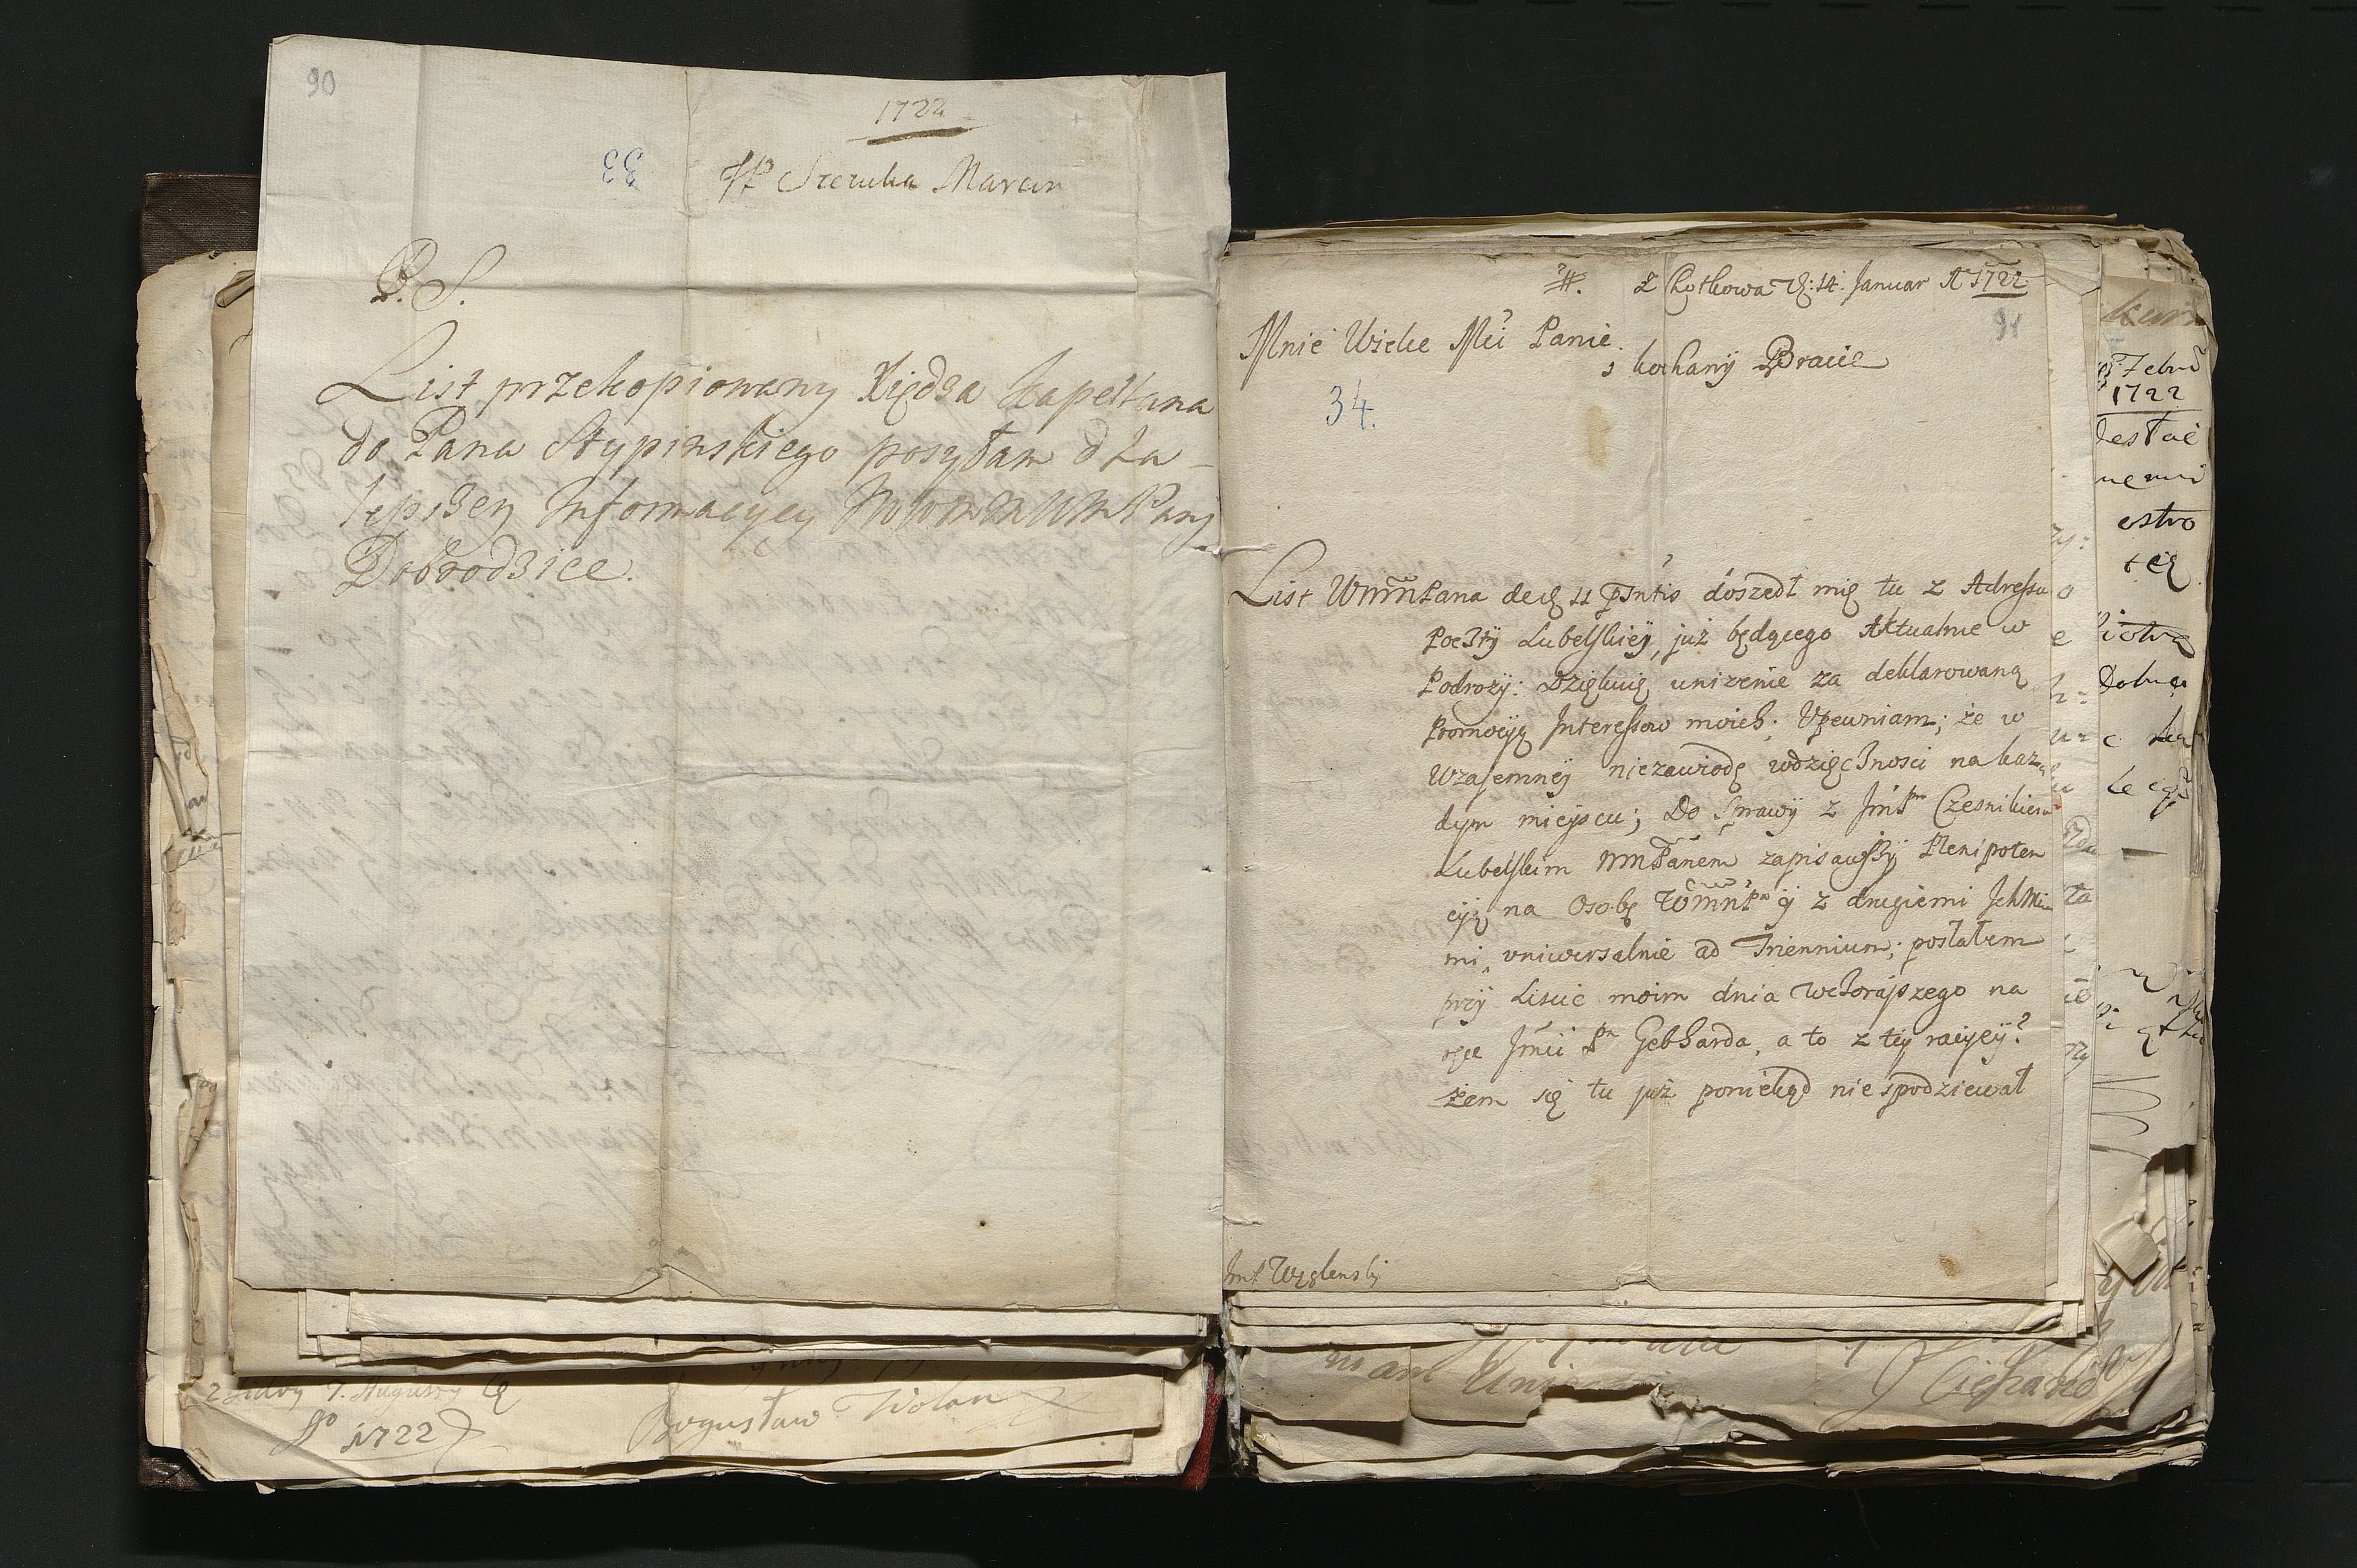 90
1722
33
JP Szczuka Marcin
P. S.
List przekopiowany Xiędza kapellana
do Pana Stypinskiego posyłam dla
lepszey Informacyey WMM Pany
Dobrodzice.
Z Kotkowa 14. Januar A 1722
91
Mnie Wielce Mci Panie
i kochany Bracie
34.
List WmmPana de 11 pntis doszedł mię tu z Adressu
Poczty Lubelskiey, już będącego Aktualnie w
Podroży: Dziękuię unizenie za deklarowaną
Promocyą Interessow moich; Upewniam; że w
Wzajemney niezawiodę wdzięcznosci na kaz
dym miejscu; Do Sprawy z JmP Czesnikiem
Lubelskim mmPanem zapisawszy Plenipoten
cyą na Osobę WmmP y z drugiemi IchMcia
mi, vniwersalnie ad Triennium; posłałem
przy Liscie moim dnia wczorajszego na
ręce Jmci Pa Gebharda, a to z tey racyey?
żem się tu już poniekąd niespodziewał
Jmć Węglenski
Febru
1722
estwo
2 Augusty
1722
Bogusław
mam